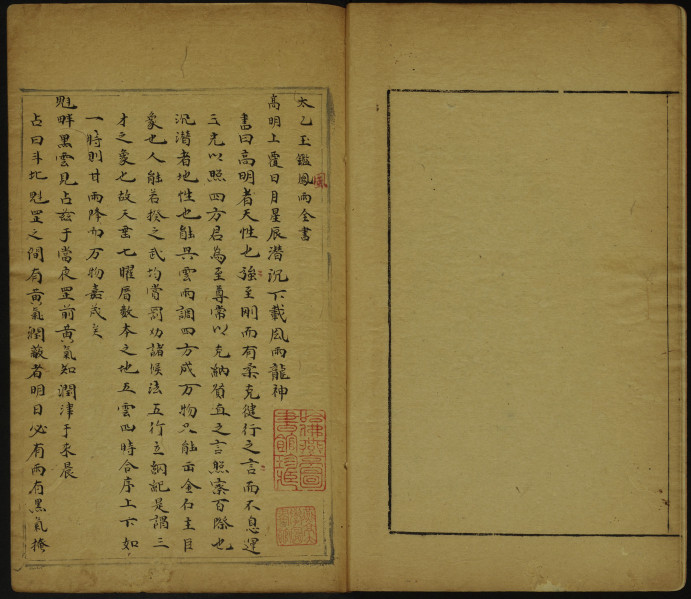 太乙玉鑑風雨全書
風
高明上覆日月星辰潛沉下載風雨龍神
書曰高明者天性也強至刚而有柔克健行之言而不息運
三光以照四方君為至尊常以克納質直之言照察百際也
沉潛者地性也能興雲雨調四方成万物又能出金石主目
象也人能若揆之武均賞罰功諸候法五行立綱紀是謂三
才之象也故天垂七曜曆數本之地五雲四時合序上下如
一時則甘雨降加万物嘉茂矣
魁畔黑雲見占兹于當夜罡前黃氣知潤津于來晨
占曰斗北魁罡之間有黃氣潤蔽者明日必有雨有黑氣掩
哈佛燕京圖
書館珍藏